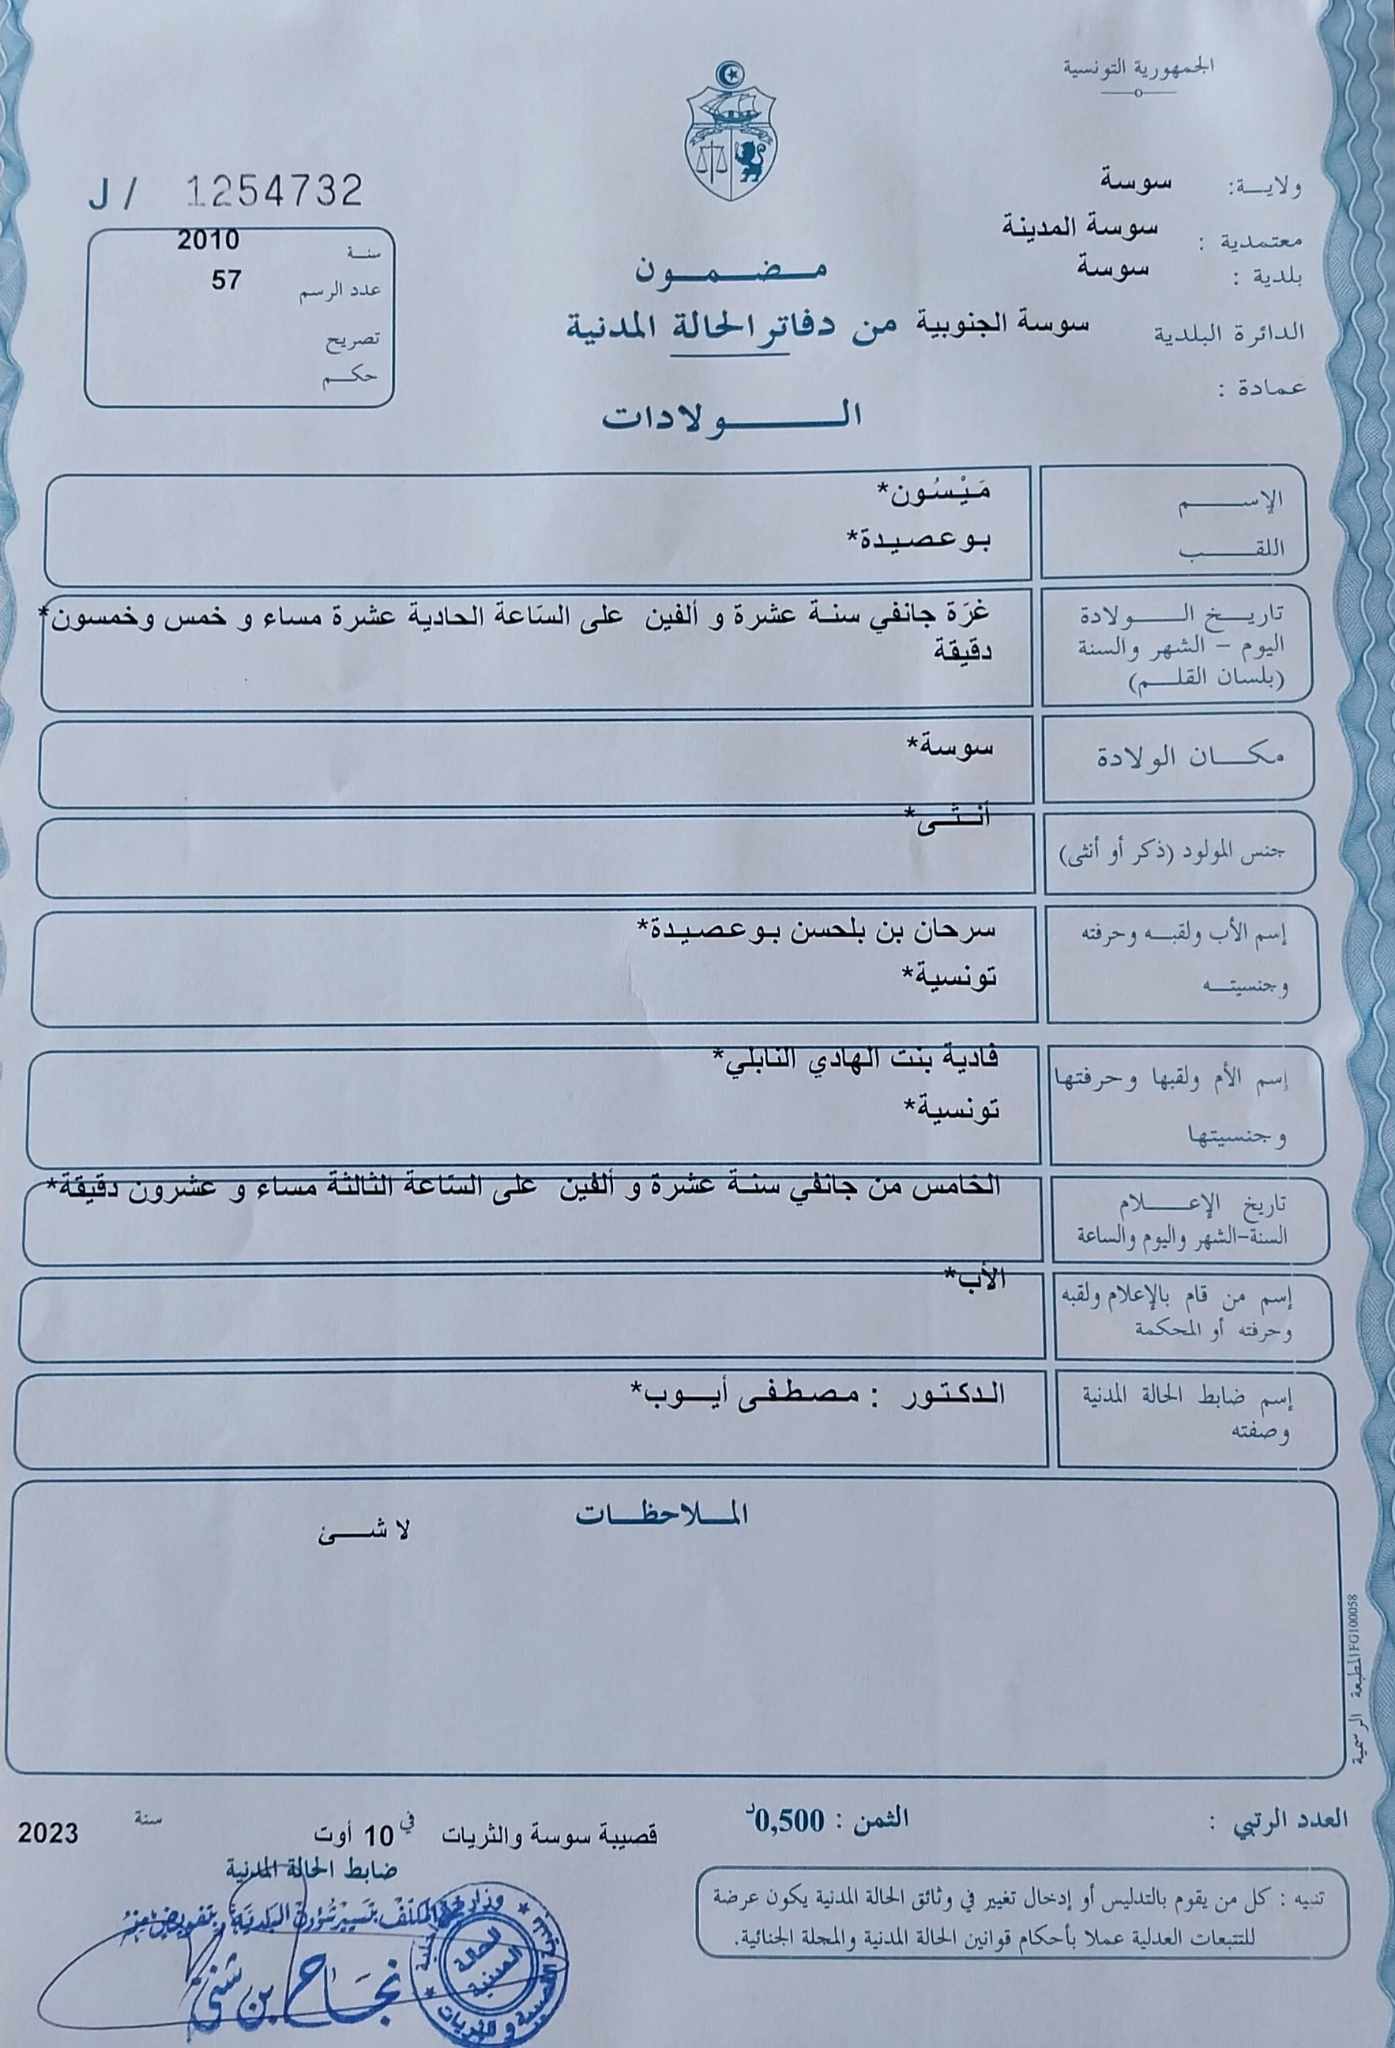 الجمهورية التونسية
ولايـة: سوسة
معتمدية : سوسة المدينة
بلدية : سوسة
الدائرة البلدية سوسة الجنوبية
عمادة :
J / 1254732
سنة 2010
عدد الرسم 57
تصريح
حكم
مضمون
من دفاتر الحالة المدنية
الولادات
الإسم مَيْسُون*
اللقب بوعصيدة*
تاريخ الولادة
اليوم – الشهر والسنة
(بلسان القلم)
غرَة جانفي سنة عشرة و ألفين على السَاعة الحادية عشرة مساء و خمس وخمسون*
دقيقة
مكان الولادة سوسة*
جنس المولود (ذكر أو أنثى) أنثى*
إسم الأب ولقبه وحرفته
وجنسيته
سرحان بن بلحسن بوعصيدة*
تونسية*
إسم الأم ولقبها وحرفتها
وجنسيتها
فادية بنت الهادي النابلي*
تونسية*
تاريخ الإعلام
السنة-الشهر واليوم والساعة
الخامس من جانفي سنة عشرة و ألفين على السَاعة الثالثة مساء و عشرون دقيقة*
إسم من قام بالإعلام ولقبه
وحرفته أو المحكمة
الأب*
إسم ضابط الحالة المدنية
وصفته
الدكتور : مصطفى أيوب*
الملاحظات
لا شئ
المطبعة الرسمية FG100058
العدد الرتبي :
الثمن : 0,500د
قصيبة سوسة والثريات في 10 أوت سنة 2023
ضابط الحالة المدنية
تنبيه : كل من يقوم بالتدليس أو إدخال تغيير في وثائق الحالة المدنية يكون عرضة
للتتبعات العدلية عملا بأحكام قوانين الحالة المدنية والمجلة الجنائية.
المكلف بتسيير شؤون البلدية بتفويض منه
نجاح بن شني
الحالة
المدنية
القصيبة و الثريات